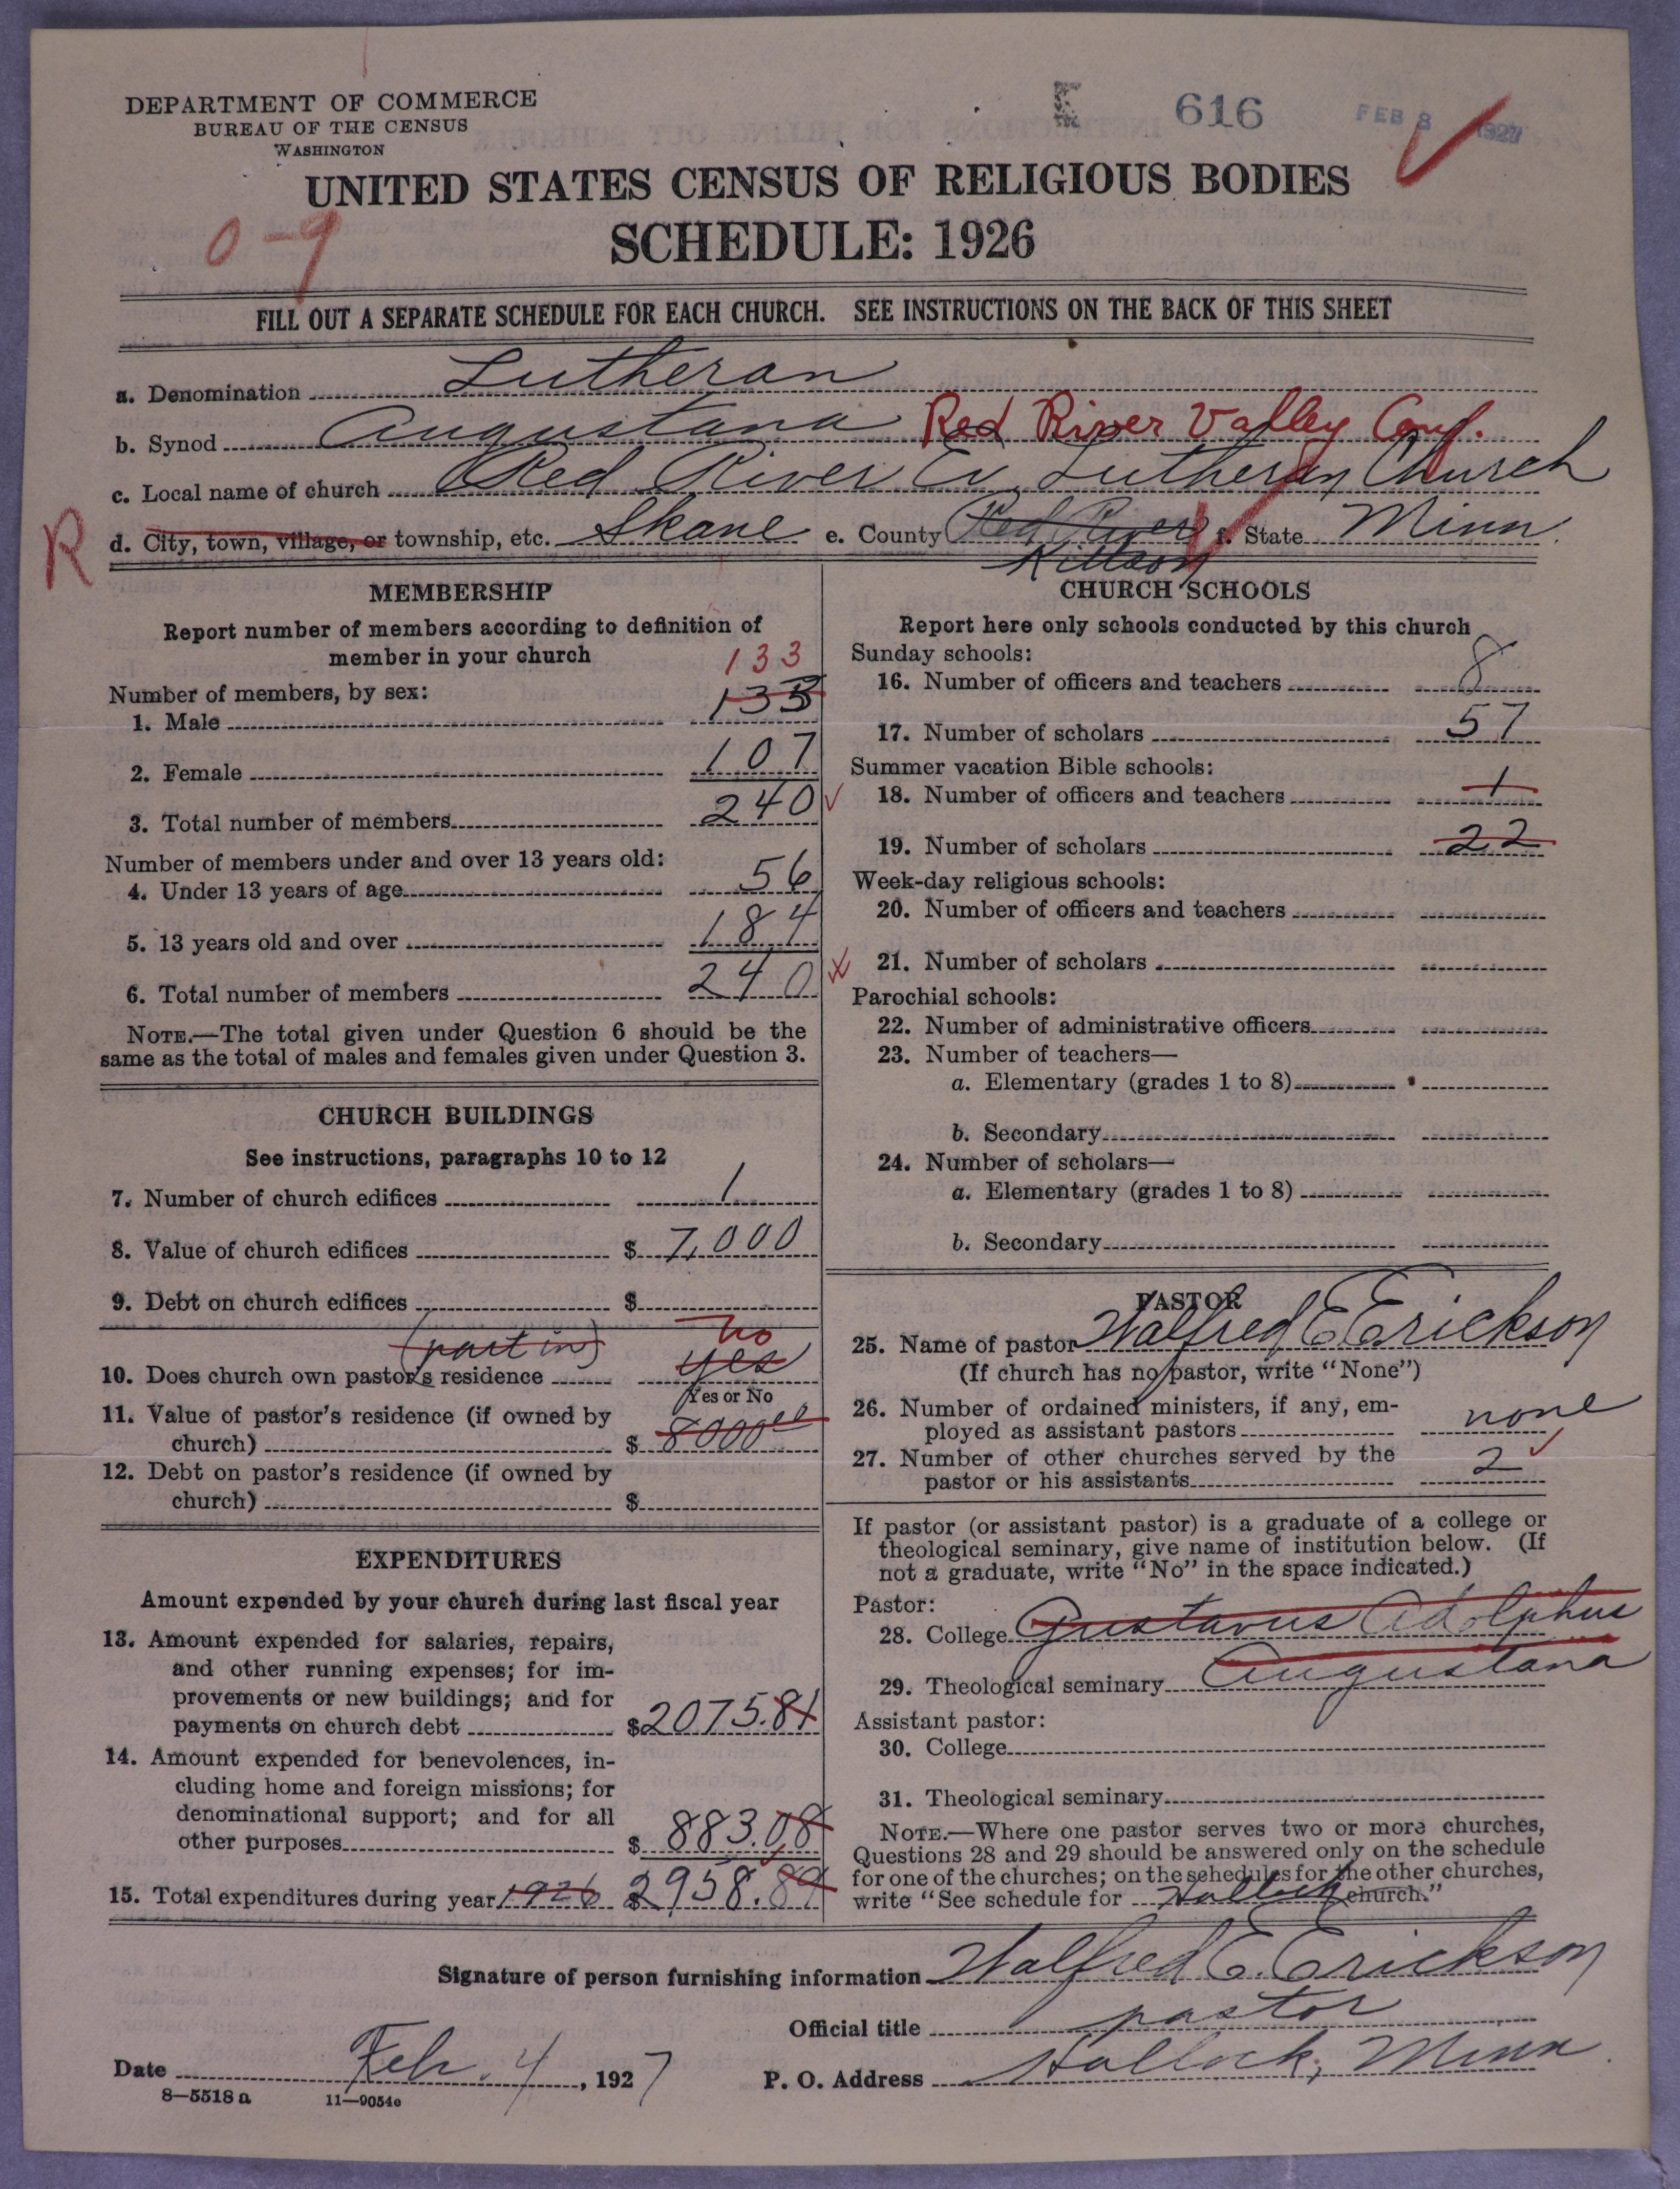 DEPARTMENT OF COMMERCE
BUREAU OF THE CENSUS
WASHINGTON
E 616 FEB 8 1927
UNITED STATES CENSUS OF RELIGIOUS BODIES
0-9
SCHEDULE: 1926
FILL OUT A SEPARATE SCHEDULE FOR EACH CHURCH. SEE INSTRUCTIONS ON THE BACK OF THIS SHEET
a. Denomination Lutheran
b. Synod Augustana Red River Valley Conf.
c. Local name of church Red River Ev. Lutheran Church
R d. City, town, village, or township, etc. Skane e. County Red River f. State Minn.
Kittson
MEMBERSHIP
Report number of members according to definition of
member in your church
133
Number of members, by sex:
1. Male 133
2. Female 107
3. Total number of members 240
Number of members under and over 13 years old:
4. Under 13 years of age 56
5. 13 years old and over 184
6. Total number of members 240
NOTE.—The total given under Question 6 should be the
same as the total of males and females given under Question 3.
CHURCH BUILDINGS
See instructions, paragraphs 10 to 12
7. Number of church edifices 1
8. Value of church edifices $ 7,000
9. Debt on church edifices $
(part in) no
10. Does church own pastor's residence yes
Yes or No
11. Value of pastor's residence (if owned by
church) $ 8000 00
12. Debt on pastor's residence (if owned by
church) $
EXPENDITURES
Amount expended by your church during last fiscal year
13. Amount expended for salaries, repairs,
and other running expenses; for im-
provements or new buildings; and for
payments on church debt $ 2075.81
14. Amount expended for benevolences, in-
cluding home and foreign missions; for
denominational support; and for all
other purposes $ 883.08
15. Total expenditures during year 1926 $ 2958.89
CHURCH SCHOOLS
Report here only schools conducted by this church
Sunday schools:
16. Number of officers and teachers 8
17. Number of scholars 57
Summer vacation Bible schools:
18. Number of officers and teachers 1
19. Number of scholars 22
Week-day religious schools:
20. Number of officers and teachers
21. Number of scholars
Parochial schools:
22. Number of administrative officers
23. Number of teachers—
a. Elementary (grades 1 to 8)
b. Secondary
24. Number of scholars—
a. Elementary (grades 1 to 8)
b. Secondary
PASTOR
25. Name of pastor Walfred E. Erickson
(If church has no pastor, write "None")
26. Number of ordained ministers, if any, em-
ployed as assistant pastors none
27. Number of other churches served by the
pastor or his assistants 2
If pastor (or assistant pastor) is a graduate of a college or
theological seminary, give name of institution below. (If
not a graduate, write "No" in the space indicated.)
Pastor:
28. College Gustavus Adolphus
29. Theological seminary Augustana
Assistant pastor:
30. College
31. Theological seminary
NOTE.—Where one pastor serves two or more churches,
Questions 28 and 29 should be answered only on the schedule
for one of the churches; on the schedules for the other churches,
write "See schedule for Hallock church."
Signature of person furnishing information Walfred E. Erickson
Official title pastor
Date Feb. 4, 1927 P. O. Address Hallock, Minn.
8—5518 a 11—9054c